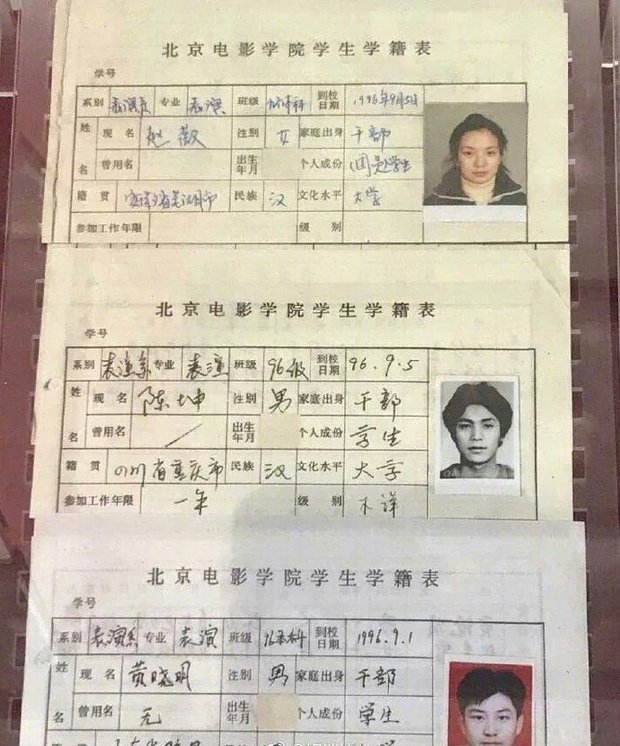 北京电影学院学生学籍表
学号
系别 表演系 专业 表演 班级 96本科 到校日期 1996年9月5日
姓名 现名 赵薇 性别 女 家庭出身 干部
曾用名 出生年月 个人成份 学生
籍贯 安徽省芜湖市 民族 汉 文化水平 大学
参加工作年限 级别
北京电影学院学生学籍表
学号
系别 表演系 专业 表演 班级 96级 到校日期 96.9.5
姓名 现名 陈坤 性别 男 家庭出身 干部
曾用名 出生年月 个人成份 学生
籍贯 四川省重庆市 民族 汉 文化水平 大学
参加工作年限 一年 级别
北京电影学院学生学籍表
学号
系别 表演系 专业 表演 班级 96本科 到校日期 1996.9.1
姓名 现名 黄晓明 性别 男 家庭出身 干部
曾用名 无 出生年月 个人成份 学生